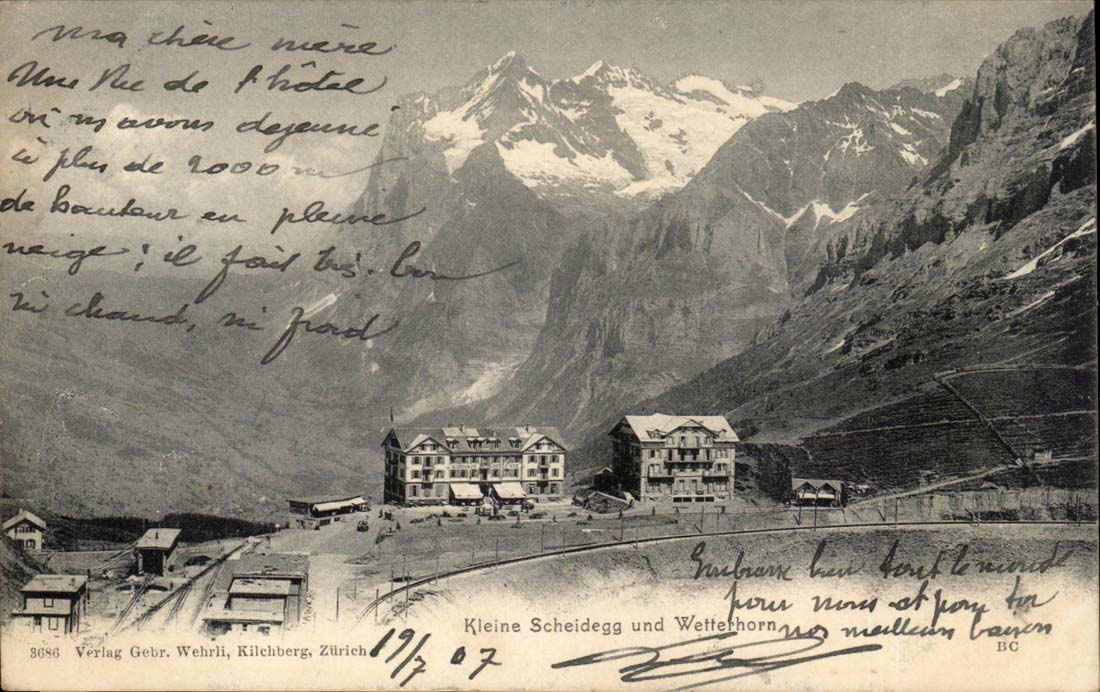 ma chère mère
Une Vue de l'hôtel
où ns avons dejeuné
à plus de 2000 m
de hauteur en pleine
neige ; il fait très bon
ni chaud, ni froid
Embrasse bien tout le monde
pour nous et pour toi
nos meilleurs baisers
Kleine Scheidegg und Wetterhorn
BC
3686 Verlag Gebr. Wehrli, Kilchberg, Zürich
19/7 07